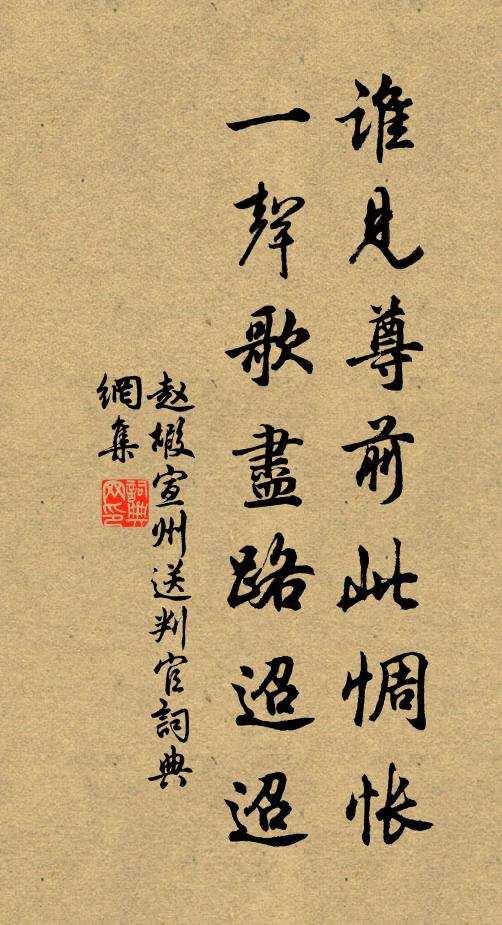 誰見尊前此惆悵
一聲歌盡路迢迢
赵嘏宣州送判官詞典
網集
詞典
网印